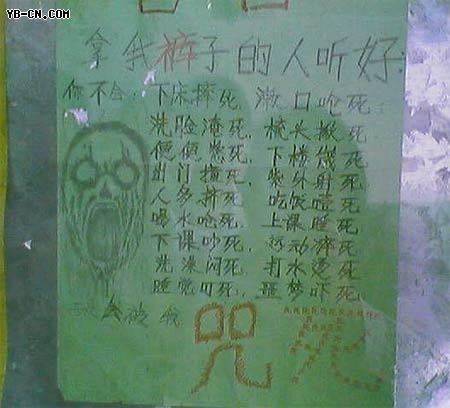 YB-CN.COM
拿我裤子的人听好:
你不会:下床摔死,漱口呛死,
洗脸淹死,梳头揪死
便便憋死,下楼 死
出门撞死,紫外射死
人多挤死,吃饭噎死
喝水呛死,上课睡死
下课吵死,运动猝死
洗澡闷死,打水烫死
睡觉叮死,噩梦吓死
会被我 咒死